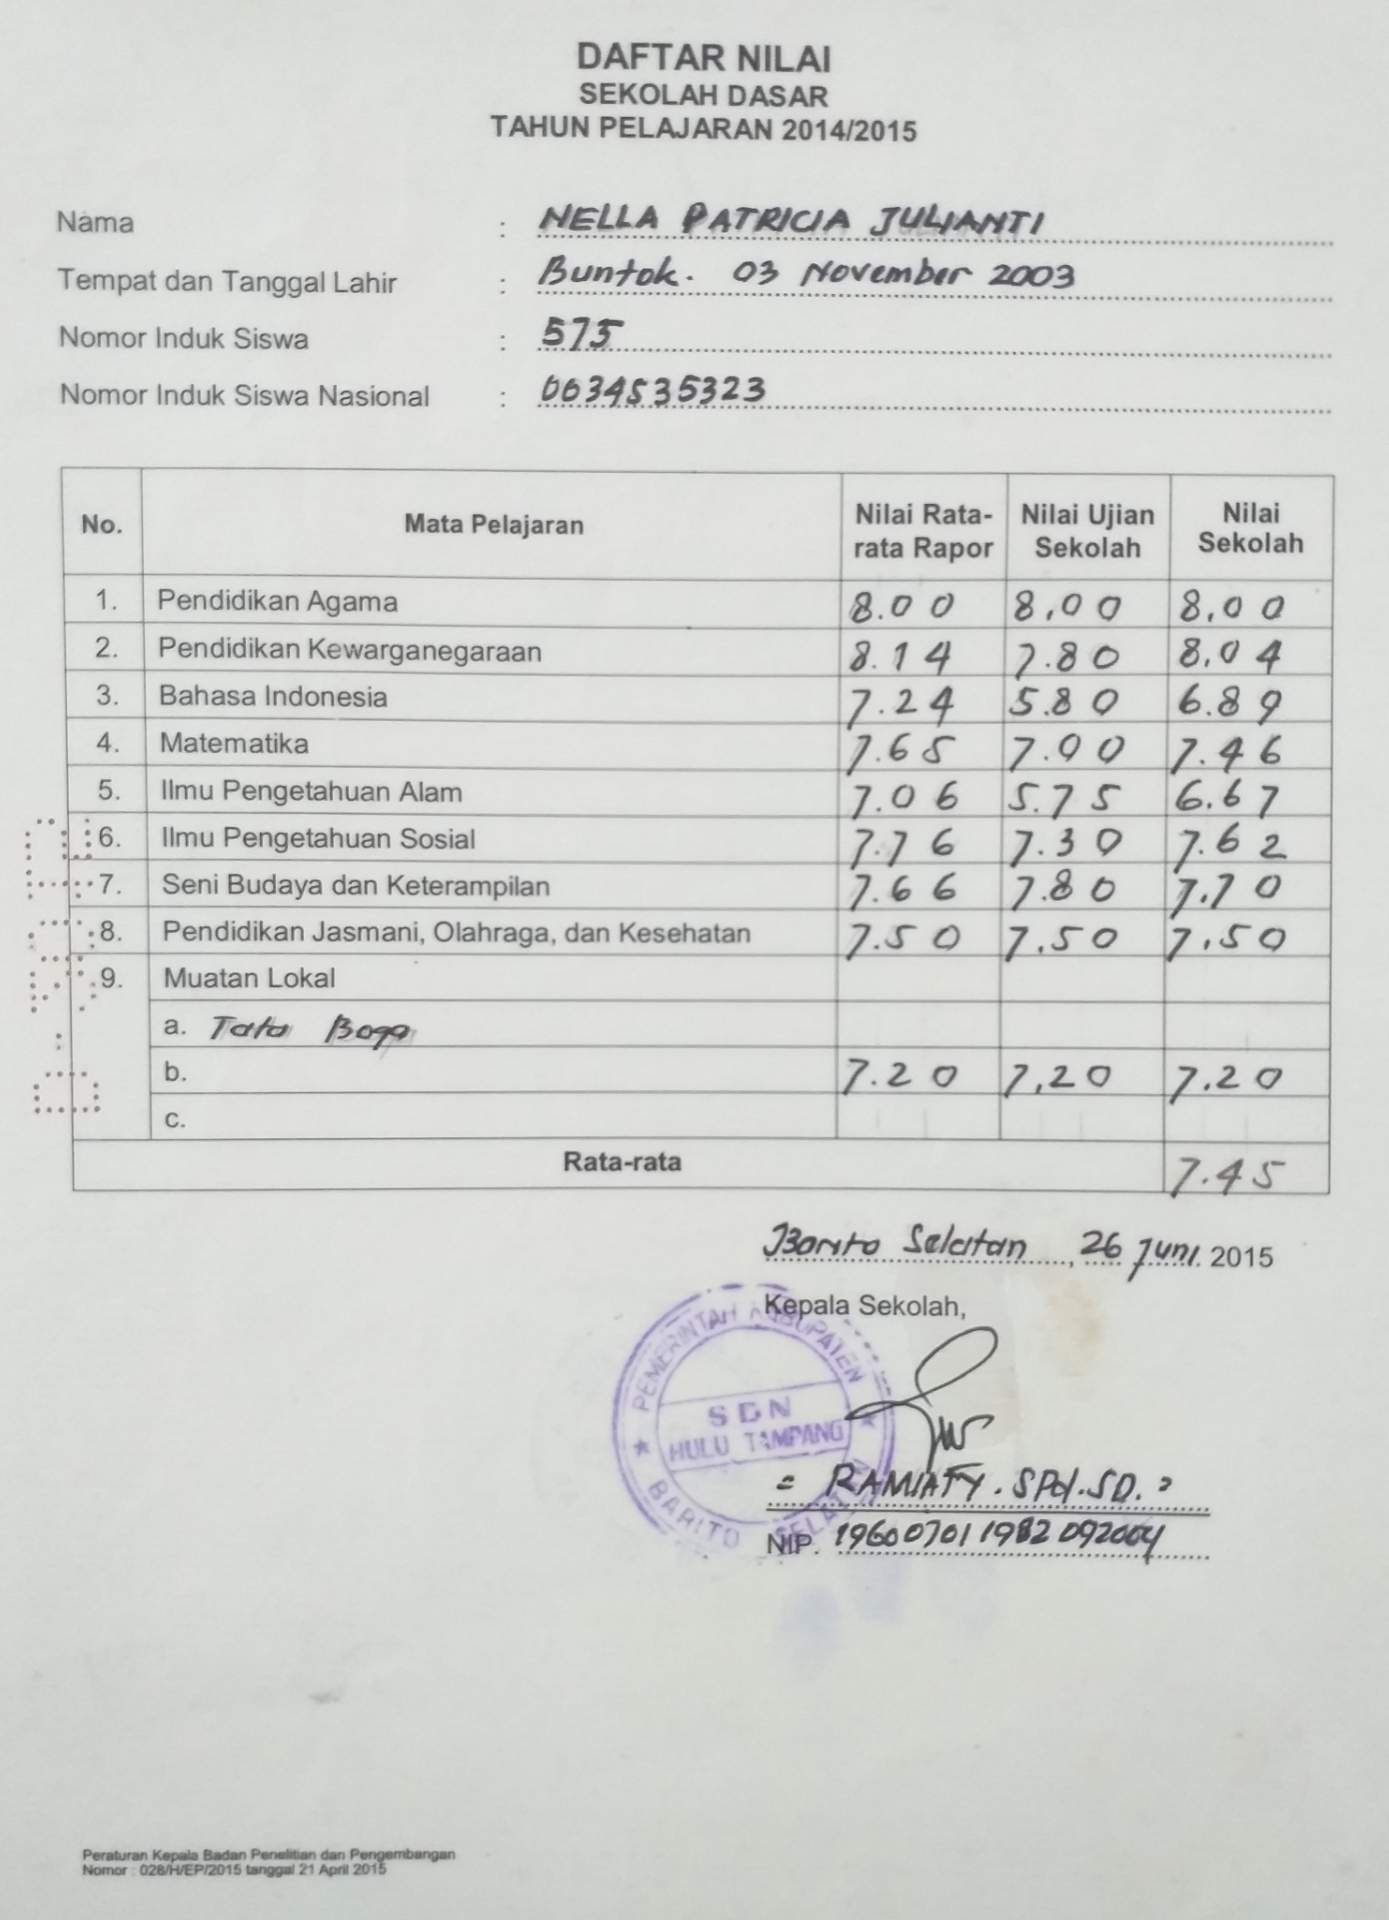 DAFTAR NILAI
SEKOLAH DASAR
TAHUN PELAJARAN 2014/2015
Nama : NELLA PATRICIA JULIANTI
Tempat dan Tanggal Lahir : Buntok. 03 November 2003
Nomor Induk Siswa : 575
Nomor Induk Siswa Nasional : 0634535323
No. Mata Pelajaran Nilai Rata-rata Rapor Nilai Ujian Sekolah Nilai Sekolah
1. Pendidikan Agama 8.00 8,00 8,00
2. Pendidikan Kewarganegaraan 8.14 7.80 8,04
3. Bahasa Indonesia 7.24 5.80 6.89
4. Matematika 7.65 7.00 7.46
5. Ilmu Pengetahuan Alam 7.06 5.75 6.67
6. Ilmu Pengetahuan Sosial 7.76 7.30 7.62
7. Seni Budaya dan Keterampilan 7.66 7.80 7.70
8. Pendidikan Jasmani, Olahraga, dan Kesehatan 7.50 7,50 7,50
9. Muatan Lokal
a. Tata Boga
b. 7.20 7,20 7.20
c.
Rata-rata 7.45
Barito Selatan, 26 Juni 2015
Kepala Sekolah,
PEMERINTAH KABUPATEN
SDN
HULU TAMPANG
BARITO SELATAN
= RAMIATY. SPd.SD. =
NIP. 19600701 1982 092004
Peraturan Kepala Badan Penelitian dan Pengembangan
Nomor : 028/H/EP/2015 tanggal 21 April 2015